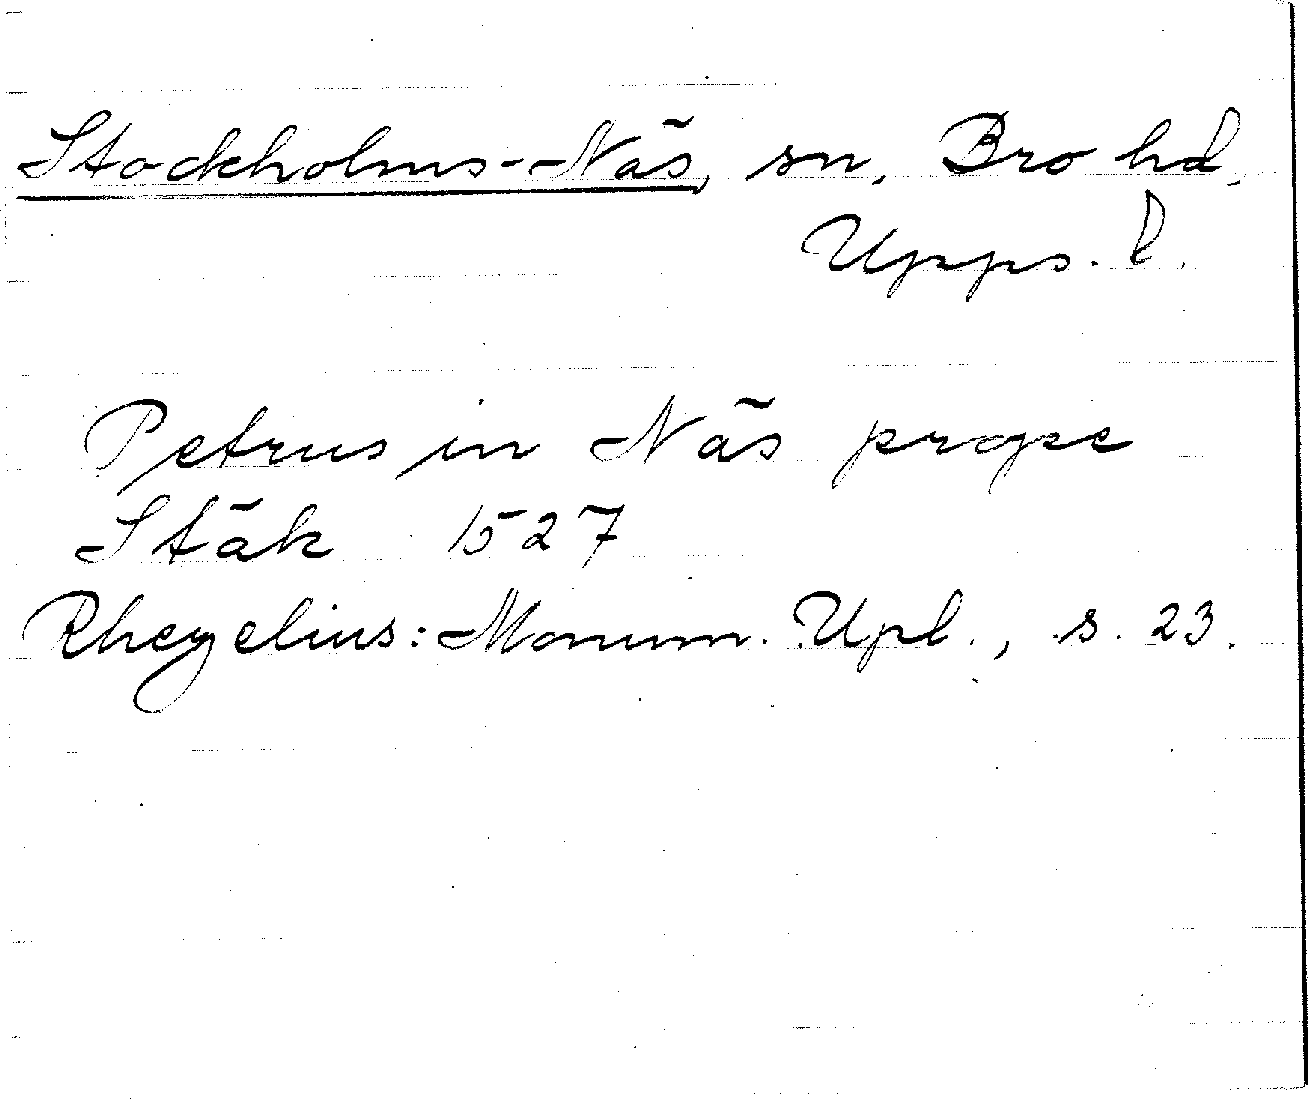 Stockholms-Näs, sn, Bro hd,
Upps. l.
Petrus in Näs prope
Stäk 1527
Rhezelius: Monum. Upl., s. 23.